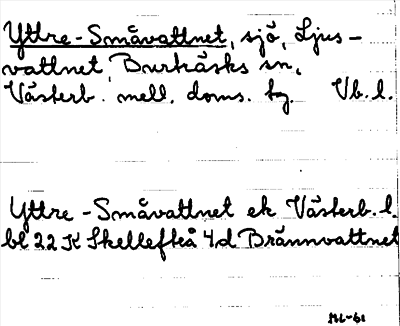 Yttre-Småvattnet, sjö, Ljus-
vattnet, Burträsks sn,
Västerb. mell. doms. tg. Vb. l.
Yttre-Småvattnet ek Västerb. l.
bl 22 K Skellefteå 4d Brännvattnet